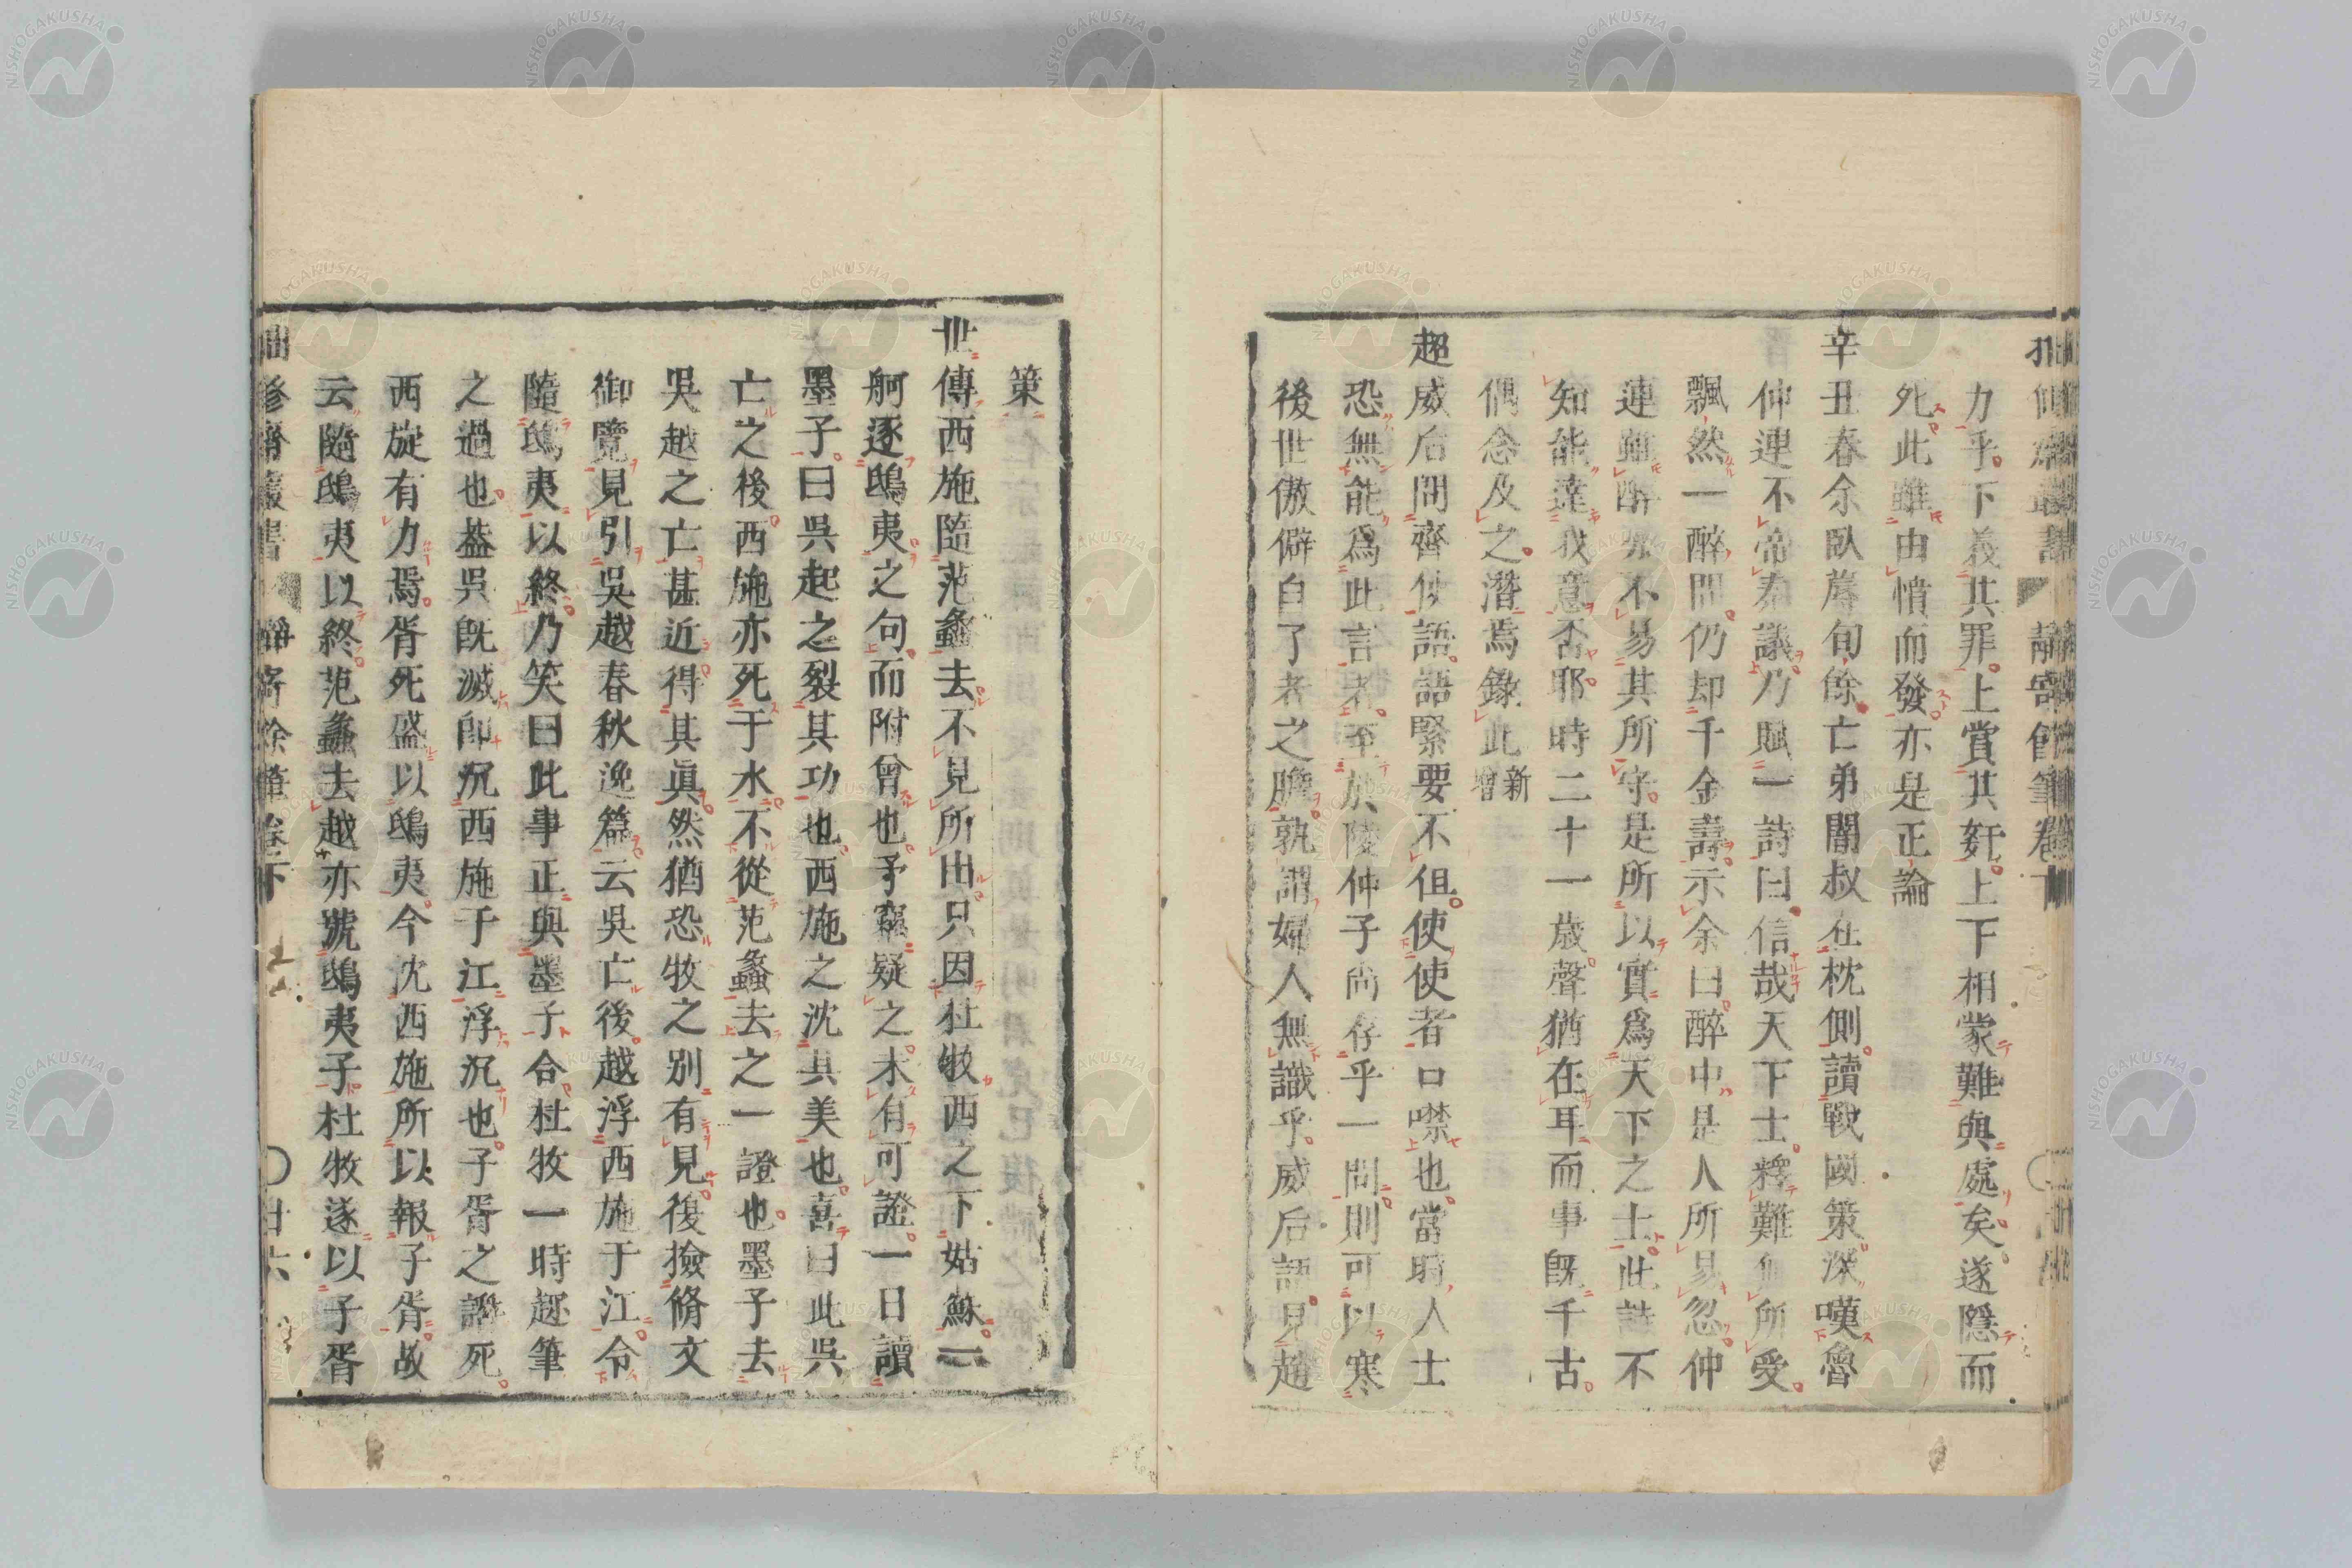 力乎下義其罪上賞其姧上下相蒙難與處矣遂隱而
死此雖由憤而發亦是正論
辛丑春余臥蓐旬餘亡弟闇叔在枕側讀戰國策深嘆魯
仲連不帝秦議乃賦一詩曰信哉天下士釋難無所受
飄然一醉間仍却千金壽示余曰醉中是人所易忽仲
連雖醉亦不易其所守是所以實爲天下之士此詩不
知能達我意否耶時二十一歲聲猶在耳而事既千古
偶念及之潛焉錄此新增
趙威后問齊使語語緊要不但使使者口噤也當時人士
恐無能爲此言者至於陵仲子尙存乎一問則可以寒
後世傲僻自了者之膽孰謂婦人無識乎威后語見趙
策
世傳西施隨范蠡去不見所出只因杜牧西之下姑蘇一
舸逐鴟夷之句而附會也予竊疑之未有可證一日讀
墨子曰吳起之裂其功也西施之沈其美也喜曰此吳
亡之後西施亦死于水不從范蠡去之一證也墨子去
吳越之亡甚近得其眞然猶恐牧之别有見復撿脩文
御覽見引吳越春秋逸篇云吳亡後越浮西施于江令
隨鴟夷以終乃笑曰此事正與墨子合杜牧一時趁筆
之過也葢吳旣滅卽沉西施于江浮沉也子胥之譖死
西施有力焉胥死盛以鴟夷今沈西施所以報子胥故
云隨鴟夷以終范蠡去越亦號鴟夷子杜牧遂以子胥